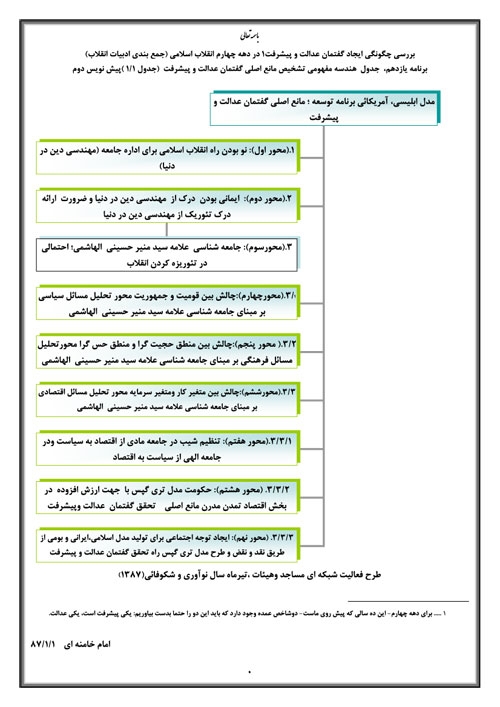 باسمه تعالی
بررسی چگونگی ایجاد گفتمان عدالت و پیشرفت۱ در دهه چهارم انقلاب اسلامی (جمع بندی ادبیات انقلاب)
برنامه یازدهم، جدول هندسه مفهومی تشخیص مانع اصلی گفتمان عدالت و پیشرفت (جدول ۱/۱ )پیش نویس دوم
مدل ابلیسی، آمریکائی برنامه توسعه ؛ مانع اصلی گفتمان عدالت و
پیشرفت
۱.(محور اول): نو بودن راه انقلاب اسلامی برای اداره جامعه (مهندسی دین در
دنیا)
۲.(محور دوم): ایمانی بودن درک از مهندسی دین در دنیا و ضرورت ارائه
درک تئوریک از مهندسی دین در دنیا
۳.(محورسوم): جامعه شناسی علامه سید منیر حسینی الهاشمی؛ احتمالی
در تئوریزه کردن انقلاب
۳/۱.(محورچهارم):چالش بین قومیت و جمهوریت محور تحلیل مسائل سیاسی
بر مبنای جامعه شناسی علامه سید منیر حسینی الهاشمی
۳/۲.( محور پنجم):چالش بین منطق حجیت گرا و منطق حس گرا محورتحلیل
مسائل فرهنگی بر مبنای جامعه شناسی علامه سید منیر حسینی الهاشمی
۳/۳.(محورششم):چالش بین متغیر کار ومتغیر سرمایه محور تحلیل مسائل اقتصادی
بر مبنای جامعه شناسی علامه سید منیر حسینی الهاشمی
۳/۳/۱.(محور هفتم): تنظیم شیب در جامعه مادی از اقتصاد به سیاست ودر
جامعه الهی از سیاست به اقتصاد
۳/۳/۲. (محور هشتم): حکومت مدل تری گپس با جهت ارزش افزوده در
بخش اقتصاد تمدن مدرن مانع اصلی تحقق گفتمان عدالت وپیشرفت
۳/۳/۳. (محور نهم): ایجاد توجه اجتماعی برای تولید مدل اسلامی،ایرانی و بومی از
طریق نقد و نقض و طرح مدل تری گپس راه تحقق گفتمان عدالت و پیشرفت
طرح فعالیت شبکه ای مساجد وهیئات ،تیرماه سال نوآوری و شکوفائی(۱۳۸۷)
۱ .... برای دهه چهارم- این ده سالی که پیش روی ماست- دوشاخص عمده وجود دارد که باید این دو را حتما بدست بیاوریم: یکی پیشرفت است، یکی عدالت.
امام خامنه ای ۸۷/۱/۱
۰